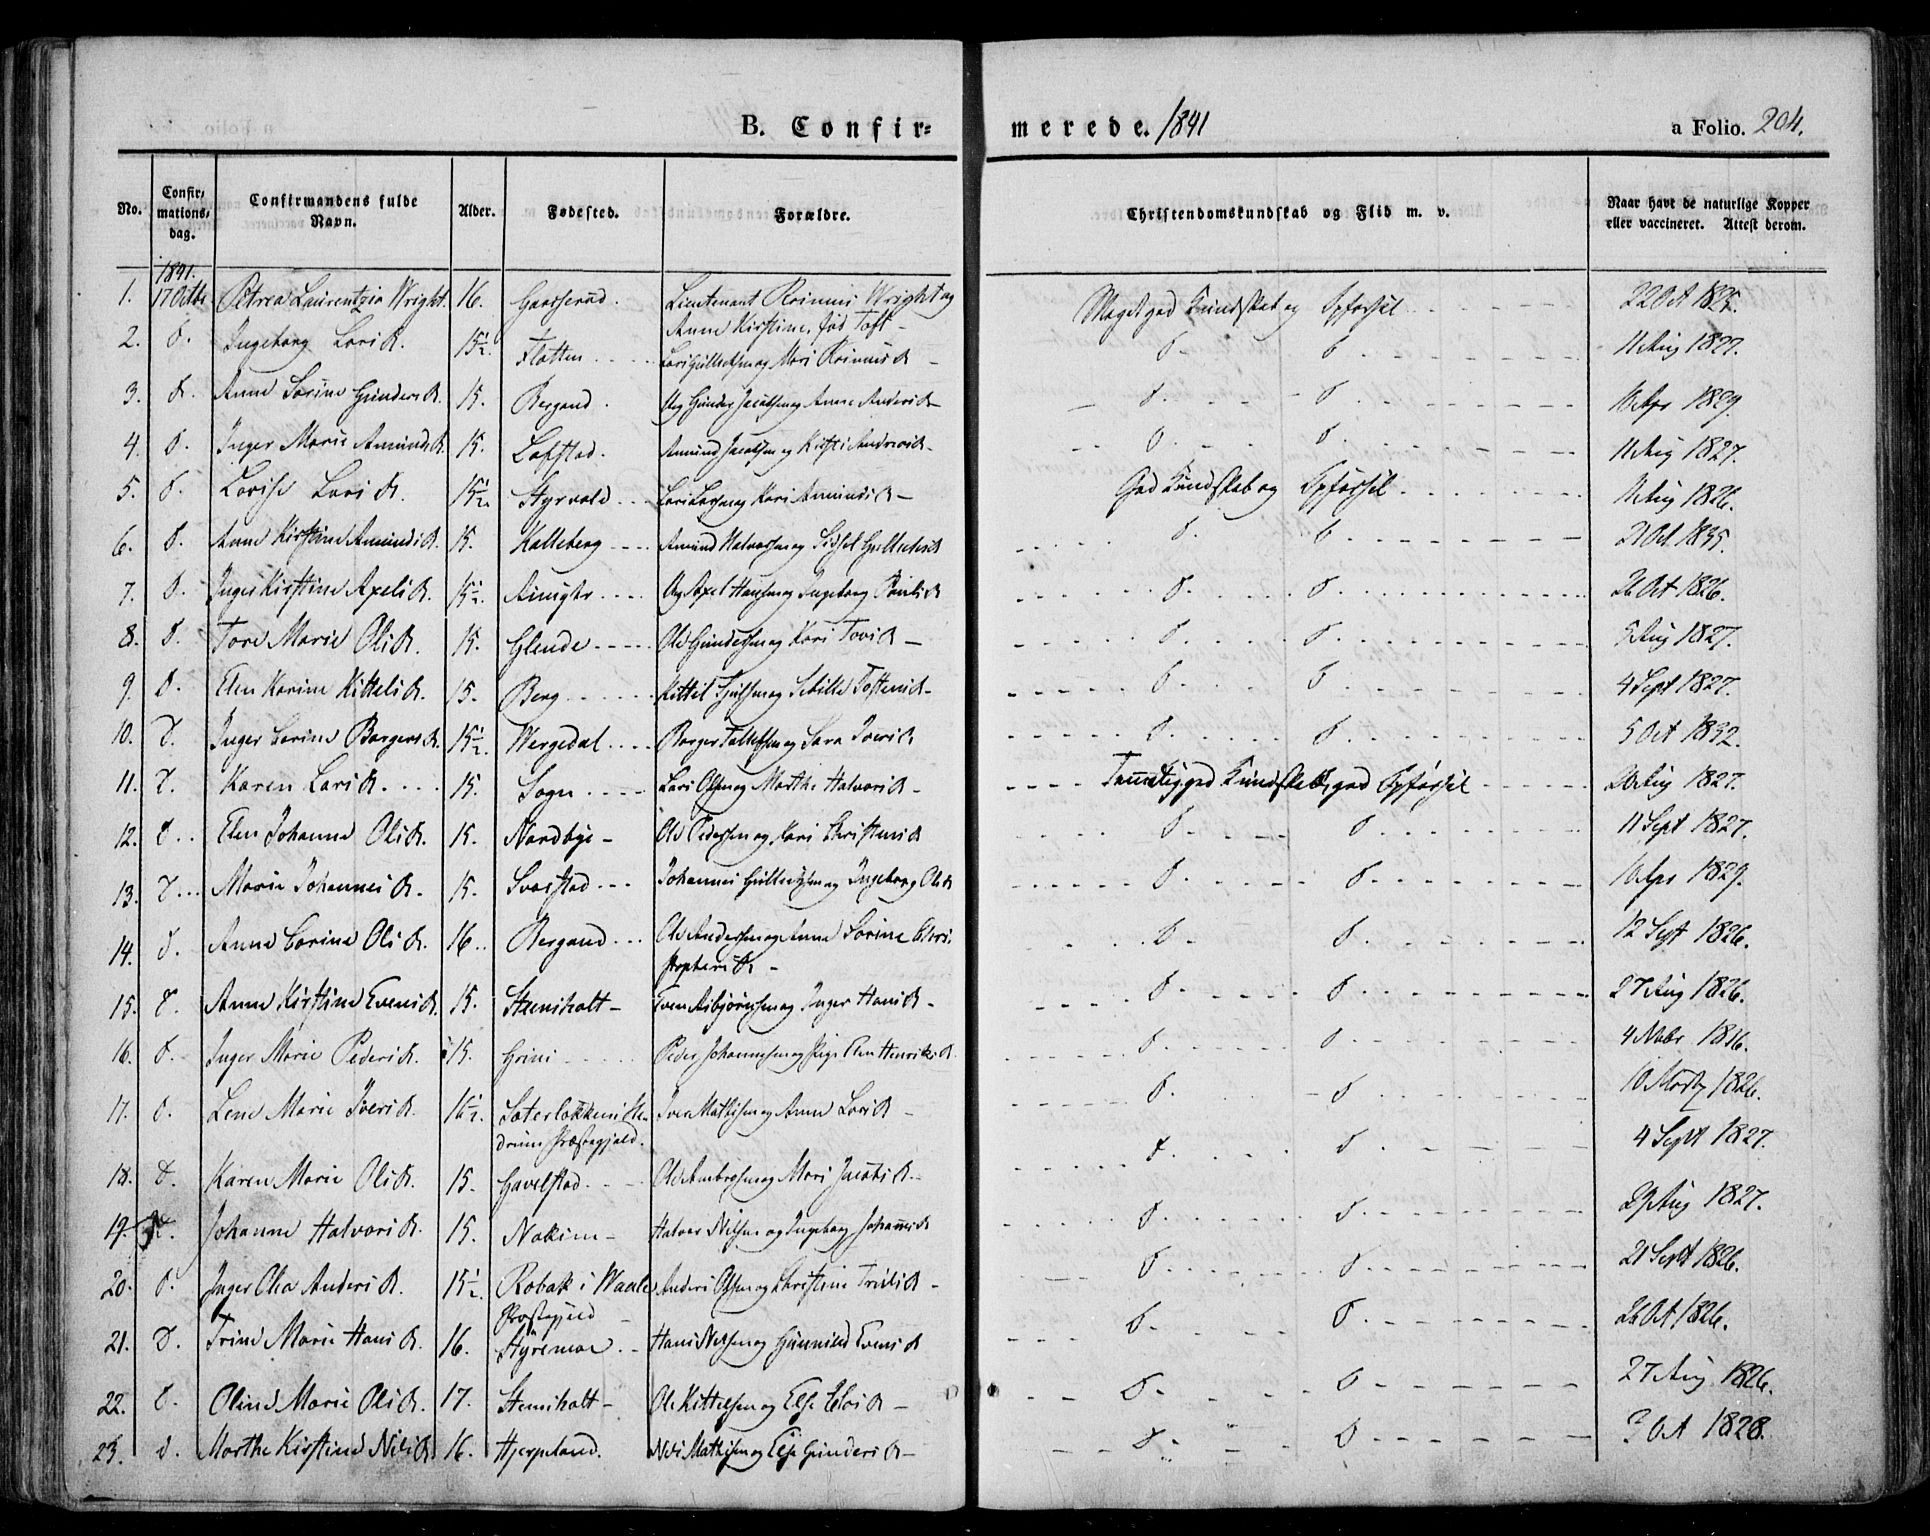 B. Confir=
merede. 1841
a Folio. 204.
No.
Confir-
mations-
dag.
Confirmandens fulde
Navn.
Alder.
Fødested.
Forældre.
Christendomskundskab og Flid m. v.
Naar havt de naturlige Kopper
eller vaccineret. Attest derom.
1841.
1. 17 Octbr Petrea Laurentzia Wright. 16. Gaaserud. Lieutenant Wright og Meget god Kundskab og Opførsel 22 Oct 1825.
Anne Kirstine, fød Toft -
2. D. Ingeborg Larsd. 15½. Flatten Lars og Mari D. D. 11 Aug 1827.
3. D. Anne Sorine Gundersd. 15. Bergand. Gunder Jacobsen og Anne Andersd D. D. 10 Apr 1829.
4. D. Inger Marie Amundsd. 15. Lofstad. Amund Jacobsen og Kirsti Andersd. D. D. 11 Aug 1827.
5. D. Lovise Larsd. 15½. Styrvold Lars Larsen og Kari Amundsd - God Kundskab og Opførsel Aug 1826.
6. D. Anne Kirstine Amundsd. 15. Kalleberg Amund Halvorsen og Sidsel D. D. 2 Oct. 1835.
7. D. Inger Kirstine Axelsd. 15½. Axel Hansen og Ingeborg Paulsd D. D. 26 Oct 1826.
8. D. Tore Marie Olsd. 15. Glende Ole Gundersen og Kari Tovsd - D. D. 5 Aug 1827.
9. D. Elen Karine Kittelsd. 15. Berg Kittil og Sibille D. D. 4 Sept 1827.
10. D. Inger Borgersd. 15½. Wergedal Borger og Sara Iversd D. D. 5 Oct 1832.
11. D. Karen Larsd. 15. Sogn Lars Olsen og Marthe Halvorsd - Temmelig god Kundskab, god Opførsel Aug 1827.
12. D. Elen Johanne Olsd. 15. Nordbye - Ole Pedersen og Kari Christensd D. D. 11 Sept 1827.
13. D. Marie Johannesd. 15. Svarstad Johannes og Ingeborg Olsd D. D. 10 Apr 1829.
14. D. Anne Olsd. 16. Bergand Ole Andersen og Anne Sorine Chri- D. D. 12 Sept 1826.
stophersd -
15. D. Anne Kirstine Evensd. 15. Steensholt - Even Asbjørnsen og Inger Hansd - D. D. 27 Aug 1826.
16. D. Inger Marie Pedersd. 15. Grini Peder Johannesen og Pige Elen Henriksd. D. D. 4 Nvbr 1816.
17. D. Lene Marie Iversd. 16½. Iver Mathisen og Anne Larsd - D. D. 10 Marts 1826.
Præstegjæld.
18. D. Karen Marie Olsd. 15. Havelstad Ole og Mari Jacobsd. D. D. 4 Sept 1827.
19. D. Johanne Halvorsd. 15. Nakim - Halvor Nilsen og Ingeborg Johannesd D. D. 29 Aug 1827.
20. D. Inger Olea Andersd. 15½. Robak i Waale Anders Olsen og Christine - D. D. 21 Sept 1826.
Præstegjeld
21. D. Trine Marie Hansd. 16. Styremoe Hans Nilsen og Gunnild Evensd D. D. 26 Oct 1826.
22. D. Oline Marie Olsd. 17. Steensholt - Ole Kittelsen og Else - D. D. 27 Aug 1826.
23. D. Marthe Kirstine Nilsd 16. Hjerpeland. Nils Mathisen og Else Gundersd - D. D. Oct 1828.